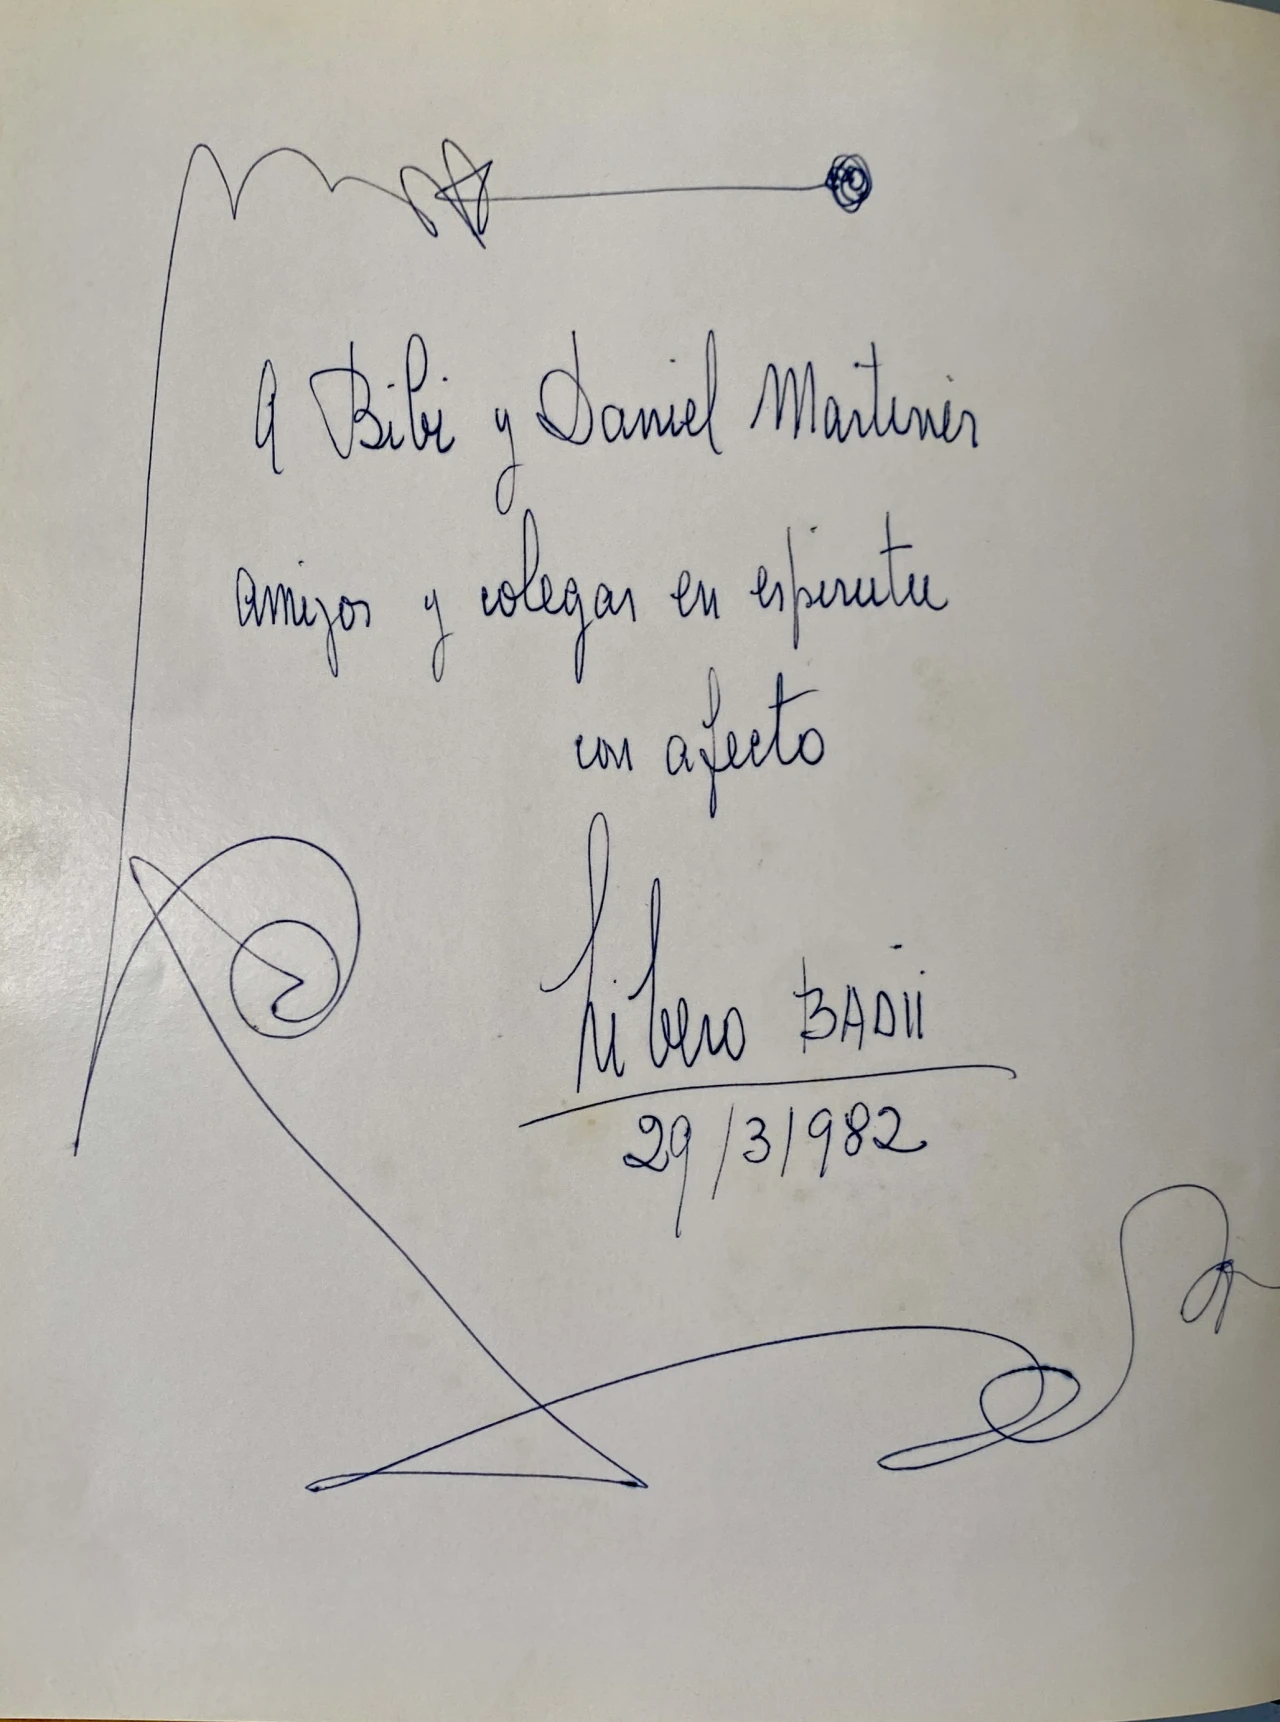 A Bibi y Daniel Martinez
amigos y colegas en espiritu
con afecto
Libero BADII
29/3/1982